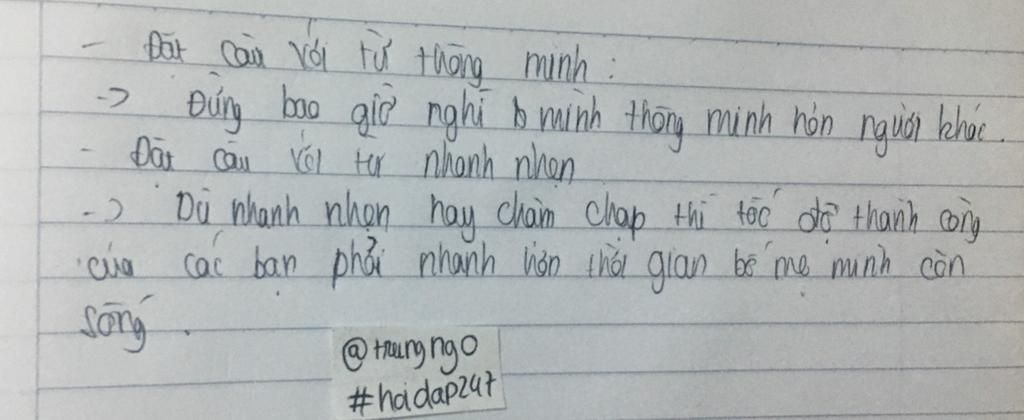 - Đặt câu với từ thông minh :
-> Đừng bao giờ nghĩ mình thông minh hơn người khác.
- Đặt câu với từ nhanh nhẹn
-> Dù nhanh nhẹn hay chậm chạp thì tốc độ thành công
của các bạn phải nhanh hơn thời gian bố mẹ mình còn
sống.
@trungngo
#hoidap247